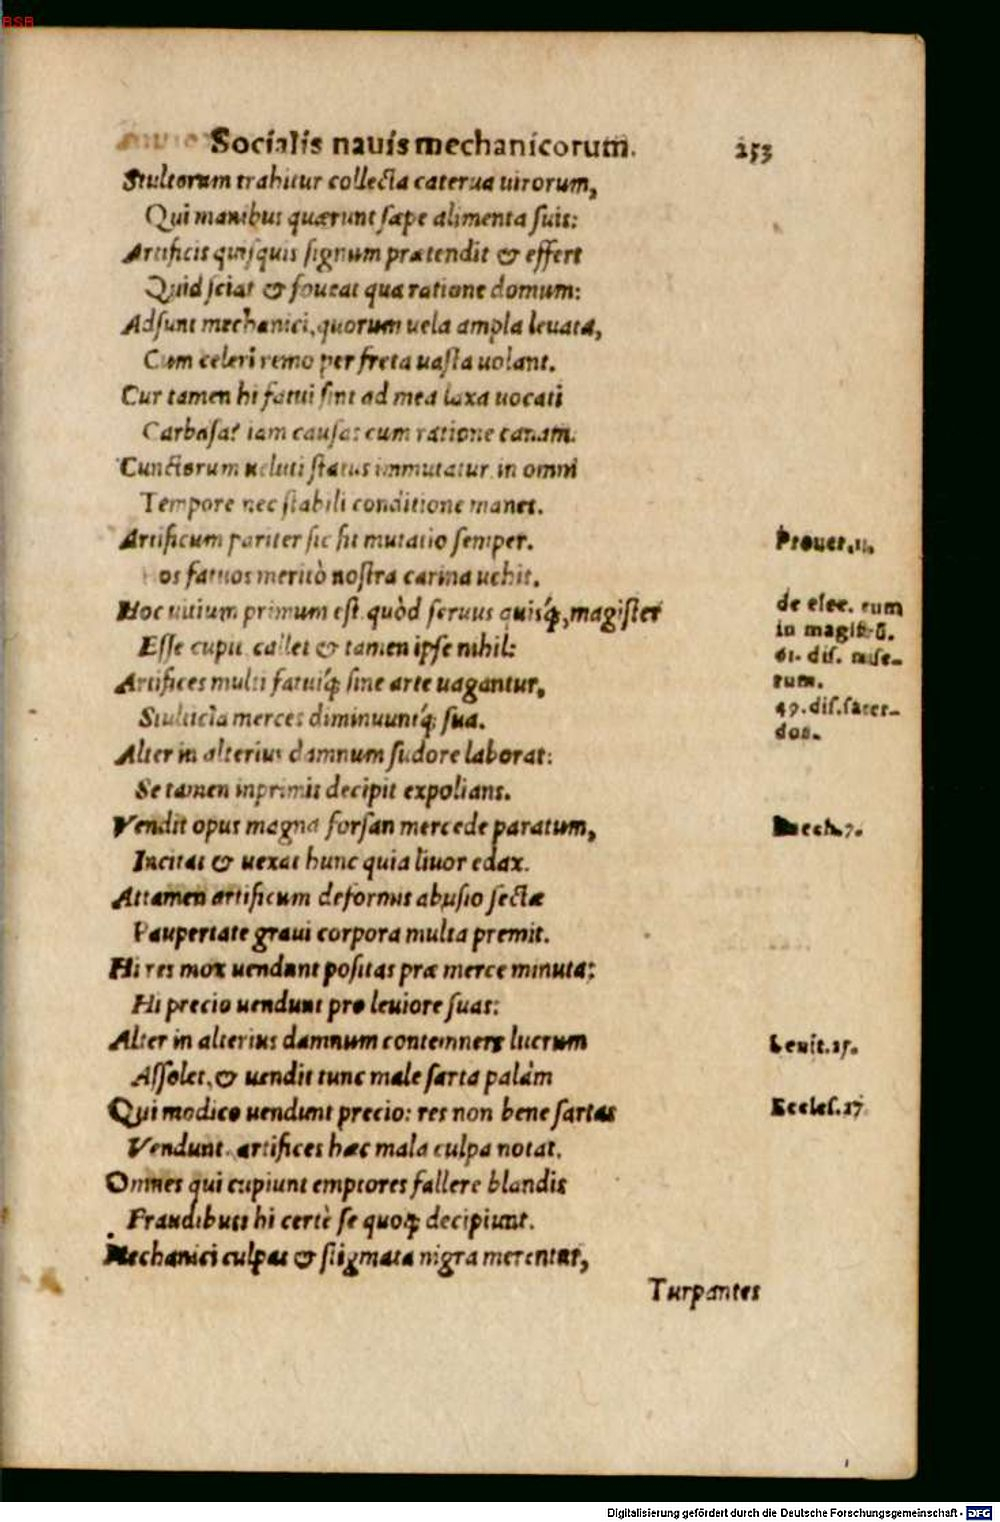 BSB
Socialis navis mechanicorum. 253
Stultorum trahitur collecta caterua uirorum,
Qui manibus quærunt sæpe alimenta suis:
Artificis quisquis signum prætendit & effert
Quid sciat & foueat qua ratione domum:
Adsunt mechanici, quorum uela ampla leuata,
Cum celeri remo per freta uasta uolant.
Cur tamen hi fatui sint ad mea laxa uocati
Carbasa? iam causas cum ratione canam.
Cunctorum ueluti status immutatur in omni
Tempore nec stabili conditione manet.
Artificum pariter sic fit mutatio semper. Prouer.11.
os fatuos meritò nostra carina uehit.
Hoc uitium primum est quòd seruus quisq́;, magister de elec. cum
Esse cupit callet & tamen ipse nihil: in magistrū.
61. dis. mise-
Artifices multi fatuiq́; sine arte uagantur, rum.
49.dis.sacer-
Stulticia merces diminuuntq́; sua. dos.
Alter in alterius damnum sudore laborat:
Se tamen inprimis decipit expolians.
Vendit opus magna forsan mercede paratum, 7.
Incitat & uexat hunc quia liuor edax.
Attamen artificum deformis abusio sectæ
Paupertate graui corpora multa premit.
Hi res mox uendunt positas præ merce minuta:
Hi precio uendunt pro leuiore suas:
Alter in alterius damnum contemnere lucrum Leuit.25.
Assolet, & uendit tunc male sarta palàm
Qui modico uendunt precio: res non bene sartas Eccles.27
Vendunt. artifices hæc mala culpa notat.
Omnes qui cupiunt emptores fallere blandis
Fraudibus: hi certè se quoq; decipiunt.
Mechanici culpas & stigmata nigra merentur,
Turpantes
Digitalisierung gefördert durch die Deutsche Forschungsgemeinschaft - DFG